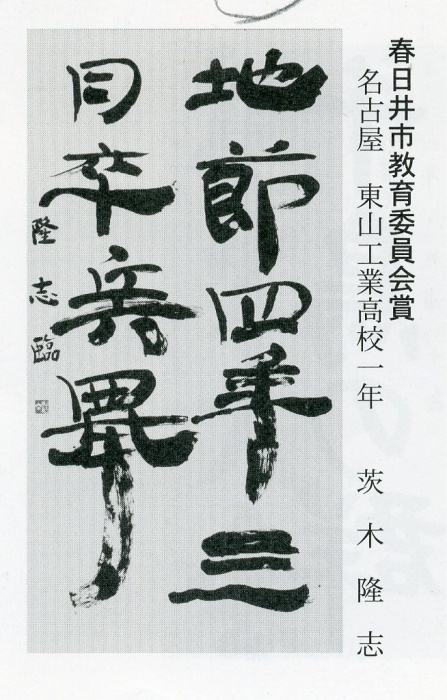 春日井市教育委員会賞
名古屋　東山工業高校一年　茨木隆志
地節四年三
月卒兵舉
隆志臨